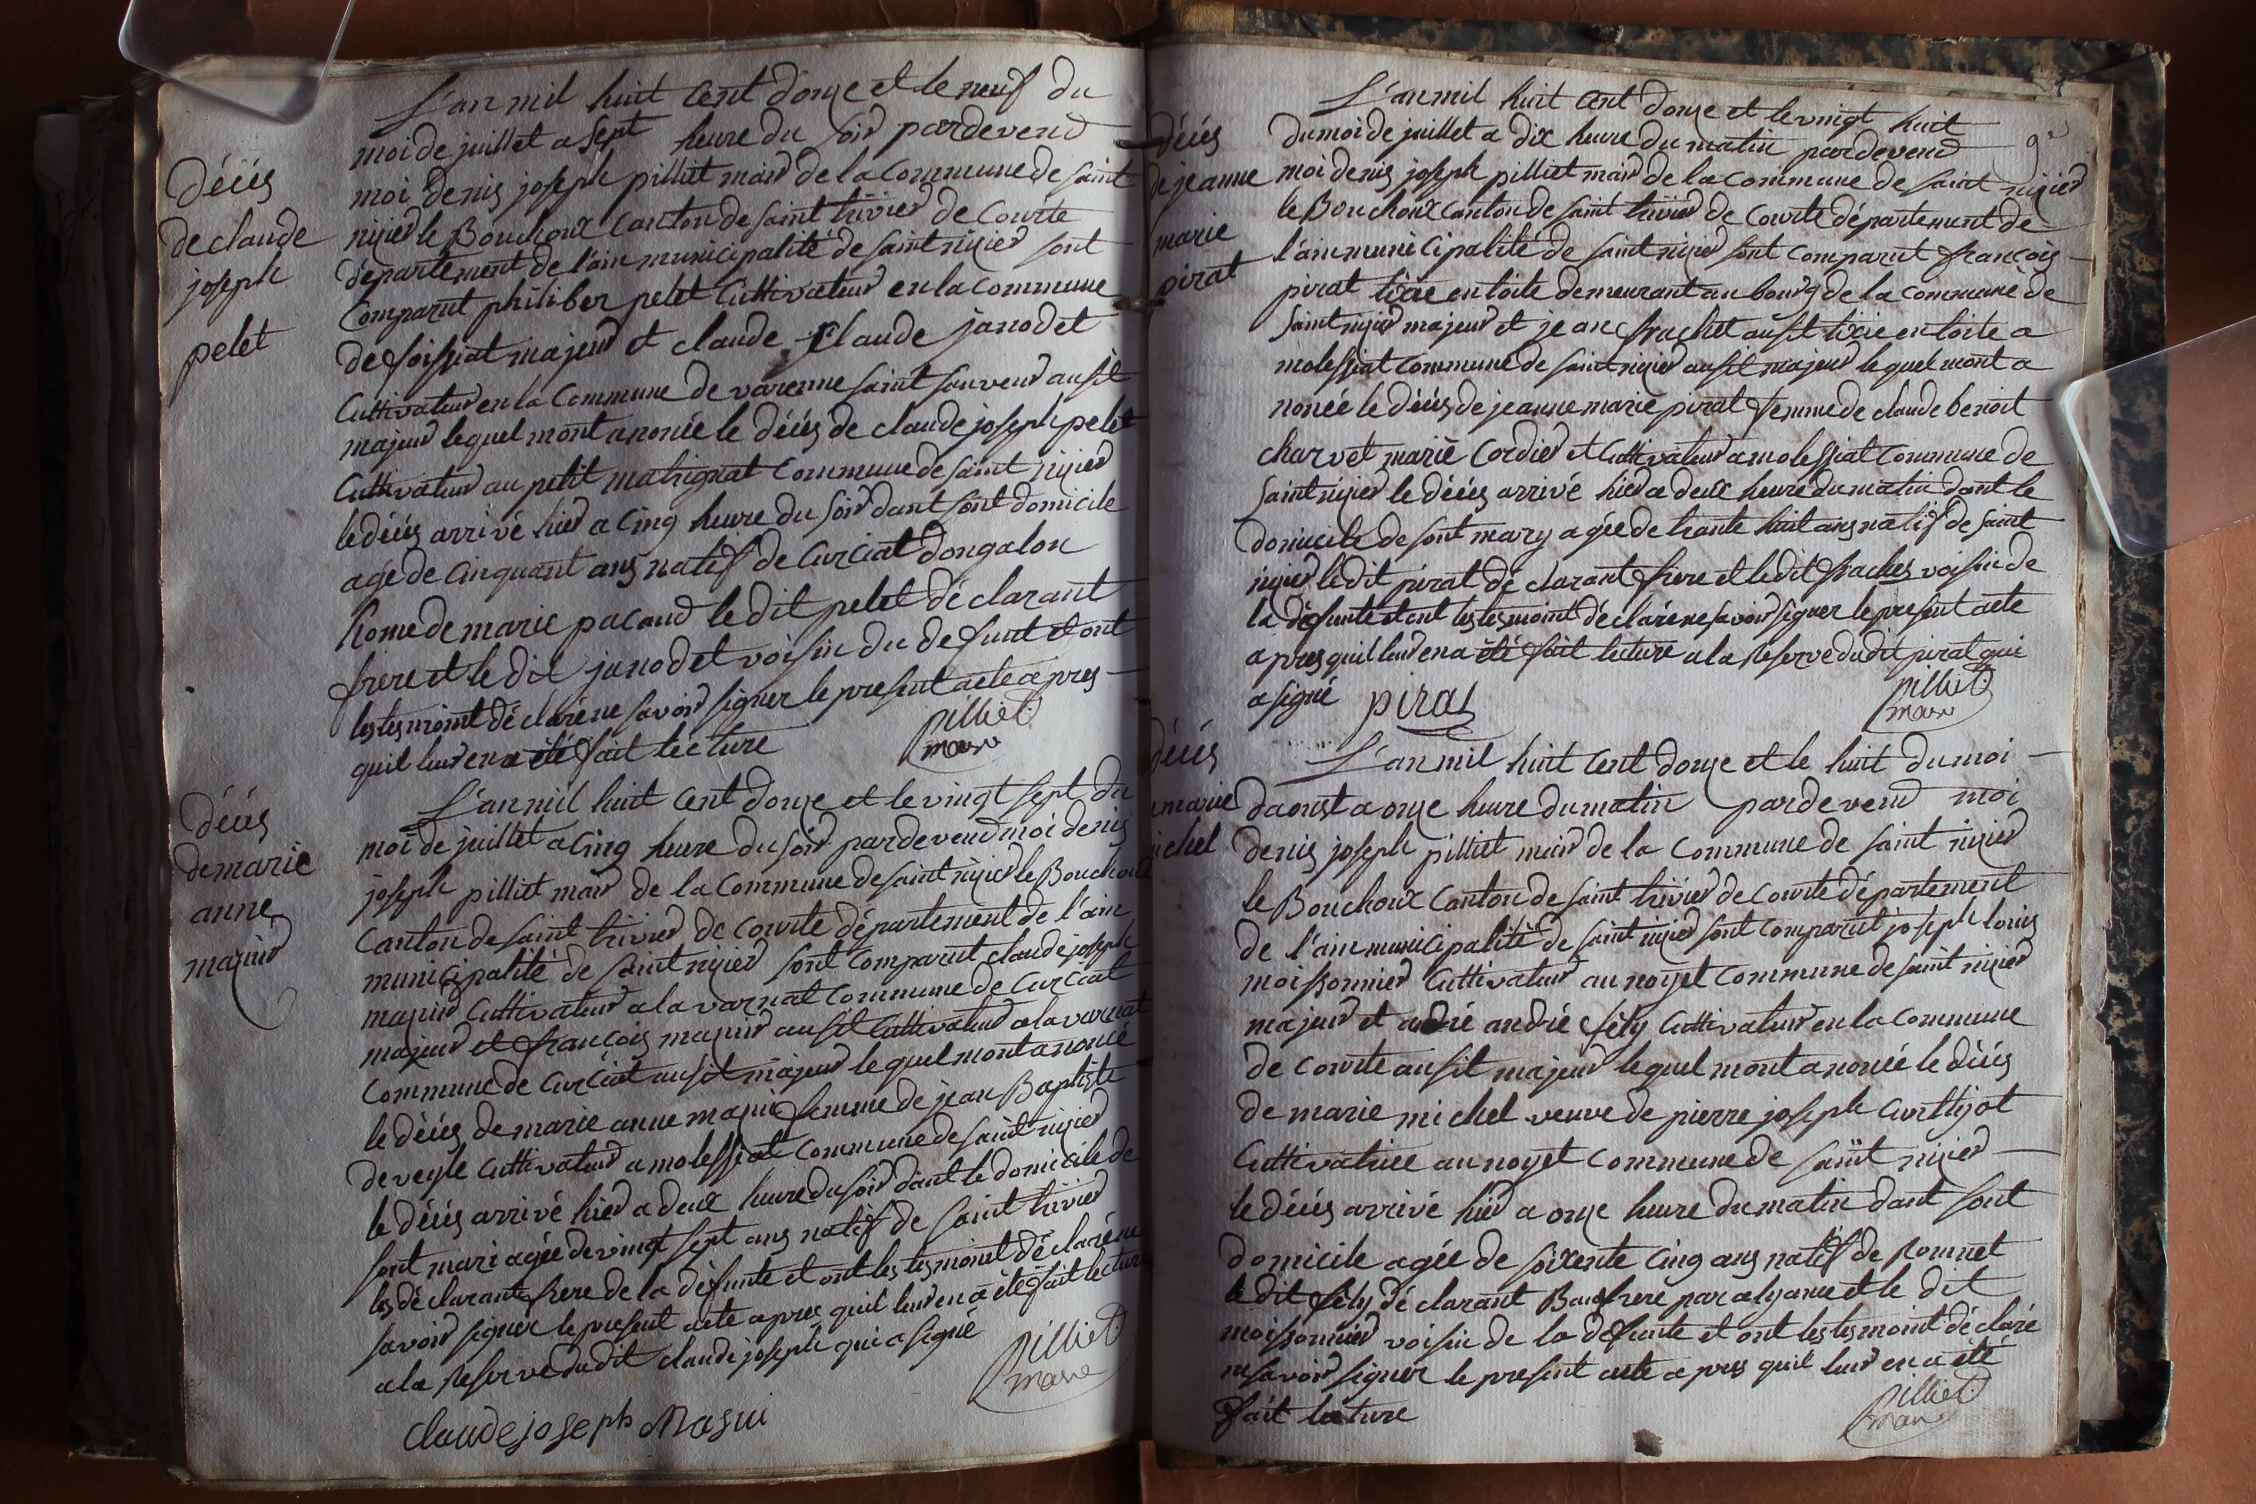 L'an mil huit cent douze et le neuf du
moi de juillet a sept heure du soir pardevend
moi denis joseph pilliet mair de la commune de saint
nizier le Bouchoux canton de saint trivier de Courte
département de l'ain municipalité de saint nizier sont
comparut philiber pelet cultivateur en la commune
de foissiat majeur et claude claude janodet
cultivateur en la commune de varenne saint sauveur ausit
majeur lequel mont anonée le décés de claude joseph pelet
cultivateur au petit matrignat commune de saint nizier
le décés arrivé hier a cinq heure du soir dant sont domicile
age de cinquant ans natif de curciat dongalon
home de marie pacaud le dit pelet déclarant
frere et le dit janodet voisin du defunt et ont
les tesmoint déclaré ne savoir signer le present acte apres
quil leur en a été fait lecture
pilliet
mair
décés
de claude
joseph
pelet
L'an mil huit cent douze et le vingt sept du
moi de juillet a cinq heure du soir pardevend moi denis
joseph pilliet mair de la commune de saint nizier le Bouchoux
canton de saint trivier de courte département de l'ain
municipalité de saint nizier sont comparut claude joseph
mazuir cultivateur a la varnat commune de curciat
majeur et françois mazuir ausit cultivateur a la varnat
commune de curciat ausit majeur lequel mont anoncé
le décés de marie anne mazuir femme de jean Baptiste
deveyle cultivateur a molessiat commune de saint nizier
le décés arrivé hier a deux heure du soir dant le domicile de
sont mari agée de vingt sept ans natif de saint trivier
les déclarants frere de la défunte et ont les tesmoint déclaré ne
savoir signer le present acte apres quil leur en a été fait lecture
a la reserve dudit claude joseph qui a signé
pilliet
mair
claude joseph Masui
décés
de marie
anne
mazuir
L'an mil huit cent douze et le vingt huit
du moi de juillet a dix heure du matin pardevend
moi denis joseph pilliet mair de la commune de saint nizier
le Bouchoux canton de saint trivier de courte département de
l'ain municipalité de saint nizier sont comparut françois
pirat tixie en toite demeurant au bourg de la commune de
saint nizier majeur et jean frachet ausit tixie en toite a
molessiat commune de saint nizier ausit majeur lequel mont a
nonée le décés de jeanne marie pirat femme de claude benoit
charvet marie cordier et cultivateur a molessiat commune de
saint nizier le décés arrivé hier a deux heure du matin dant le
domicile de sont mary agée de trante huit ans natif de saint
nizier le dit pirat déclarant frere et le dit fraches voisin de
la défunte et ont les tesmoint déclaré ne savoir signer le present acte
apres quil leur en a été fait lecture a la reserve dudit pirat qui
a signé pirat
pilliet
mair
décés
de jeanne
marie
pirat
L'an mil huit cent douze et le huit du moi
daoust a onze heure du matin pardevend moi
denis joseph pilliet mair de la commune de saint nizier
le Bouchoux canton de saint trivier de courte département
de l'ain municipalité de saint nizier sont comparut joseph louis
moissonnier cultivateur au noyet commune de saint nizier
majeur et andré andré féty cultivateur en la commune
de courte ausit majeur lequel mont anonée le décés
de marie michel veuve de pierre joseph curttizot
cultivatrice au noyet commune de saint nizier
le décés arrivé hier a onze heure du matin dant sont
domicile agée de soixente cinq ans natif de romnet
le dit féty déclarant Beaufrere par alyance et le dit
moissonnier voisin de la défunte et ont les tesmoint déclaré
ne savoir signer le present acte apres quil leur en a été
fait lecture
pilliet
mair
décés
marie
ichel